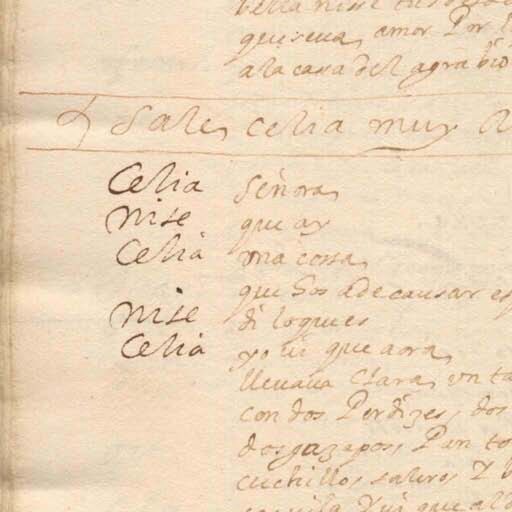 bella nise
quiseua, amor Por
a la casa del agrabio
Sale, celia muy
Celia Señora,
nise que ay
Celia una cossa,
que Os a de causar es
nise di lo que es
Celia yo ui que aora,
lleuaua Clara, un ta
con dos Perdizes, dos
dos gazapos, Pan to
cuchillos, salero, Y
Y ui que al